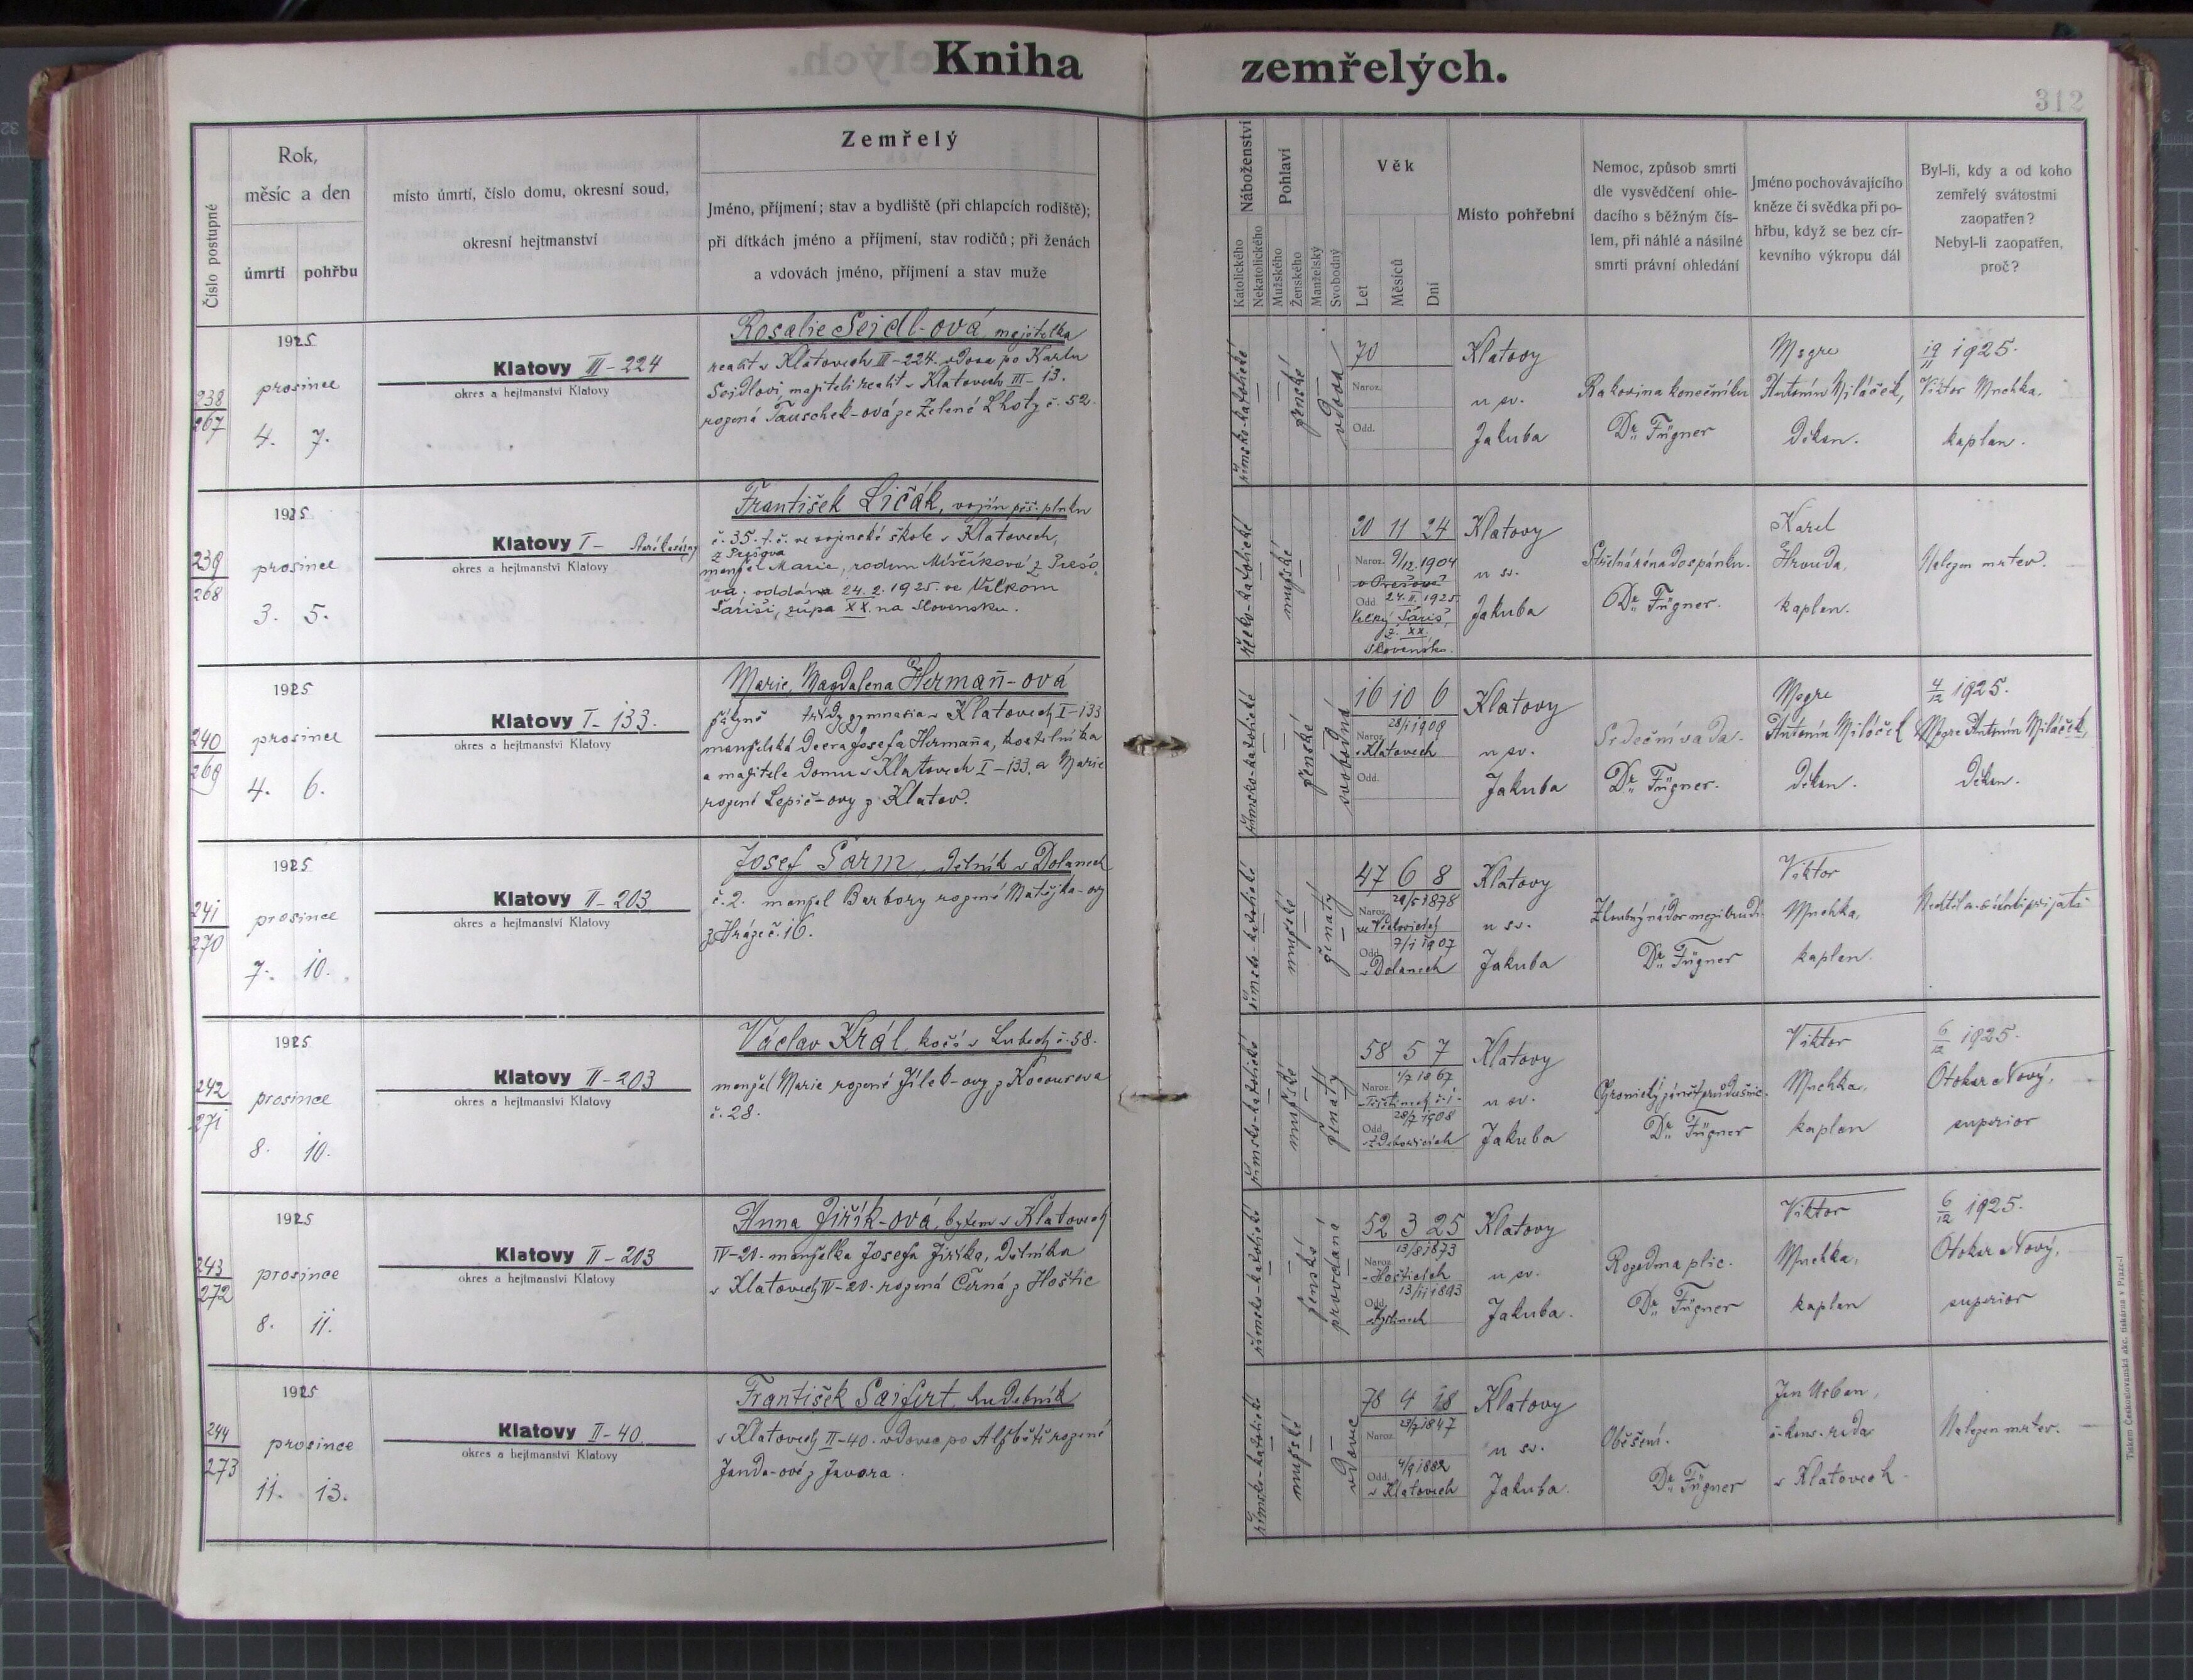 Kniha zemřelých.
312
Číslo postupné
Rok,
měsíc a den
úmrtí pohřbu
místo úmrtí, číslo domu, okresní soud,
okresní hejtmanství
Zemřelý
Jméno, příjmení; stav a bydliště (při chlapcích rodiště);
při dítkách jméno a příjmení, stav rodičů; při ženách
a vdovách jméno, příjmení a stav muže
Náboženství
Katolického
Nekatolického
Pohlaví
Mužského
Ženského
Manželský
Svobodný
Věk
Let
Měsíců
Dní
Místo pohřební
Nemoc, způsob smrti
dle vysvědčení ohle-
dacího s běžným čís-
lem, při náhlé a násilné
smrti právní ohledání
Jméno pochovávajícího
kněze či svědka při po-
hřbu, když se bez cír-
kevního výkropu dál
Byl-li, kdy a od koho
zemřelý svátostmi
zaopatřen?
Nebyl-li zaopatřen,
proč?
238
267
1925
prosince
4. 7.
Klatovy III-224
okres a hejtmanství Klatovy
Rosalie Seidl-ová, majitelka
realit v Klatovech III-224. vdova po Karlu
Seidlovi, majiteli realit v Klatovech III-13.
rozená Tauschek-ová ze Zelené Lhoty č. 52.
římsko-katolické
ženské
vdova
70
Naroz.
Odd.
Klatovy
u sv.
Jakuba
Rakovina konečníku
Dr. Fügner
Msgre
Antonín Miláček,
děkan.
19/11 1925.
Viktor Muchka,
kaplan.
239
268
1925
prosince
3. 5.
Klatovy I-
okres a hejtmanství Klatovy
František Ličák, vojín pěš. pluku
č. 35. t. č. ve vojenské škole v Klatovech,
z Prešova
manžel Marie, rodem Miščíkové z Prešo-
va; oddáni 24. 2. 1925. ve Velkom
Šariši, župa XX. na Slovensku.
mužské
20 11 24
Naroz. 9/12. 1904
v Prešově
Odd. 24. II. 1925
Velký Šariš,
ž. XX.
Slovensko.
Klatovy
u sv.
Jakuba
Střelná rána do spánku.
Dr. Fügner.
Karel
Hrouda,
kaplan.
Nalezen mrtev.
240
269
1925
prosince
4. 6.
Klatovy I-133.
okres a hejtmanství Klatovy
Marie Magdalena Hermañ-ová
žákyně třídy gymnasia v Klatovech I-133
manželská dcera Josefa Hermaña, kostelníka
a majitele domu v Klatovech I-133, a Marie
rozené Lepič-ovy z Klatov.
římsko-katolické
ženské
svobodná
16 10 6
28/1 1909
Naroz.
v Klatovech
Odd.
Klatovy
u sv.
Jakuba
Srdeční vada.
Dr. Fügner.
Msgre
Antonín Miláček
děkan.
4/12 1925.
Msgre Antonín Miláček,
děkan.
241
270
1925
prosince
7. 10.
Klatovy II-203
okres a hejtmanství Klatovy
Josef Šarm, dělník v Dolanech
č. 2. manžel Barbory rozené Matějka-ovy
z Hráze č. 16.
římsko-katolické
mužské
ženatý
47 6 8
Naroz.
Odd. 7/1 1907
v Dolanech
Klatovy
u sv.
Jakuba
Zhoubný nádor mezihrudí.
Dr. Fügner
Viktor
Muchka,
kaplan.
242
271
1925
prosince
8. 10.
Klatovy II-203
okres a hejtmanství Klatovy
Václav Král, kočí v Lubech č. 58.
manžel Marie rozené Jílek-ovy z Kocourova
č. 28.
římsko-katolické
mužské
ženatý
58 5 7
Naroz. 1/7 1867
28/7 1908
Odd.
Klatovy
u sv.
Jakuba
Chronický zánět průdušnic.
Dr. Fügner
Viktor
Muchka,
kaplan
6/12 1925.
Otokar Nový,
superior
243
272
1925
prosince
8. 11.
Klatovy II-203
okres a hejtmanství Klatovy
Anna Jiřík-ová, bytem v Klatovech
IV-20. manželka Josefa Jiříka, dělníka
v Klatovech IV-20. rozená Černá z Hoštic
římsko-katolické
ženské
provdaná
52 3 25
13/8 1873
Naroz.
v Hošticích
13/11 1893
Odd.
Klatovy
u sv.
Jakuba.
Rozedma plic.
Dr. Fügner
Viktor
Muchka,
kaplan
6/12 1925.
Otokar Nový,
superior
244
273
1925
prosince
11. 13.
Klatovy II-40.
okres a hejtmanství Klatovy
František Saifert, hudebník
v Klatovech II-40. vdovec po Alžbětě rozené
Janda-ové z Javora.
římsko-katolické
mužské
vdovec
78 4 18
23/7 1847
Naroz.
4/9 1882
Odd.
v Klatovech
Klatovy
u sv.
Jakuba.
Oběšení.
Dr. Fügner
Jan Urban,
v Klatovech.
Nalezen mrtev.
Tiskem Československá akc. tiskárna v Praze-I